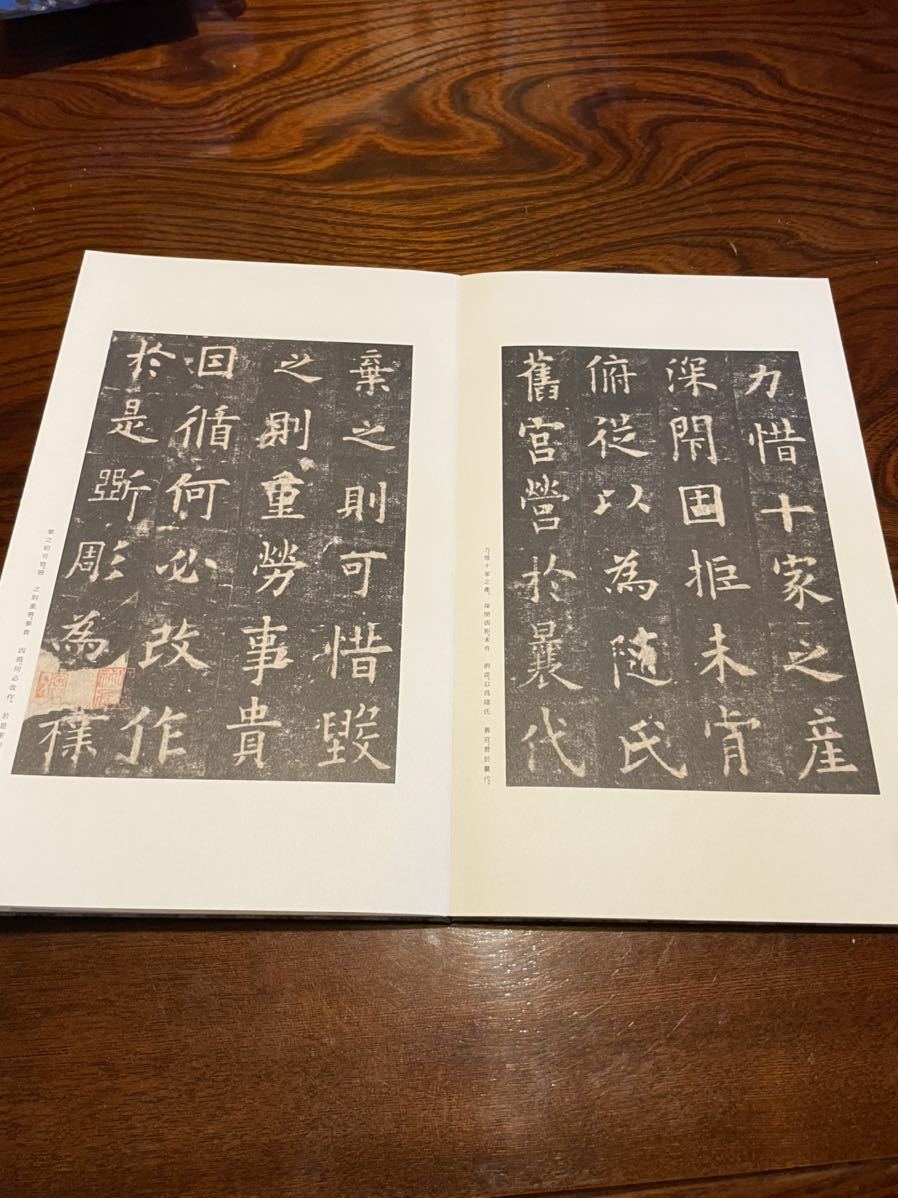 力惜十家之產
深閇固拒未肯
俯從以為隨氏
舊宮營於曩代
力惜十家之產。深閉固拒、未肯 俯從。以爲隨氏 舊宮、營於曩代。
棄之則可惜毀
之則重勞事貴
囙循何必改作
於是斵彫為樸
棄之則可惜、毀 之則重勞。事貴 因循、何必改作。於是